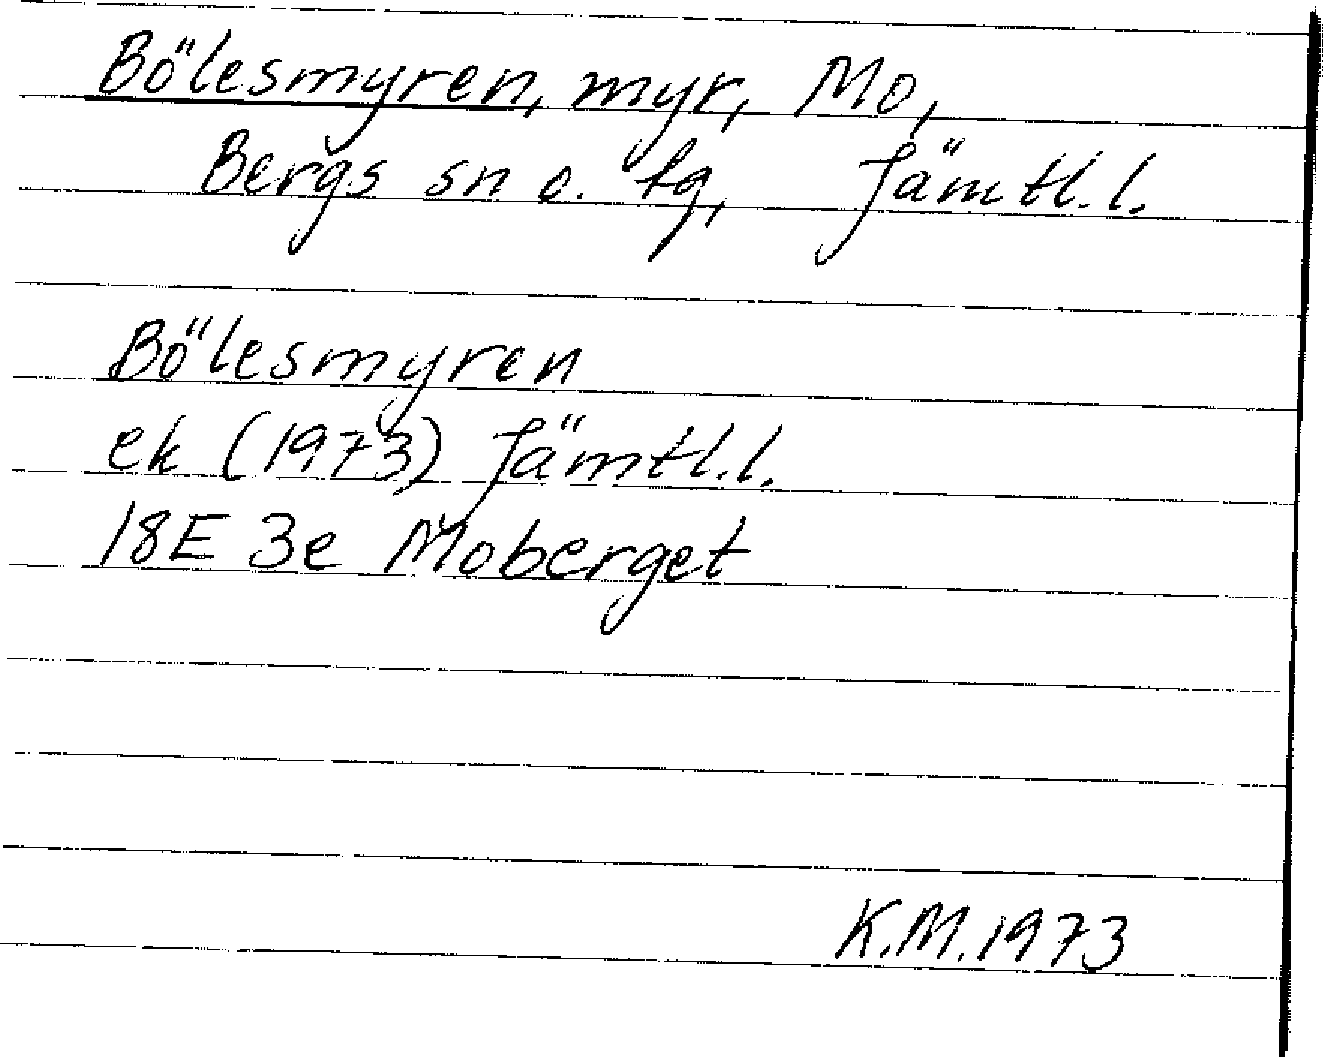 Bölesmyren, myr, Mo,
Bergs sn o. tg, Jämtl.l.
Bölesmyren
ek (1973) Jämtl.l.
18E 3e Moberget
K.M.1973